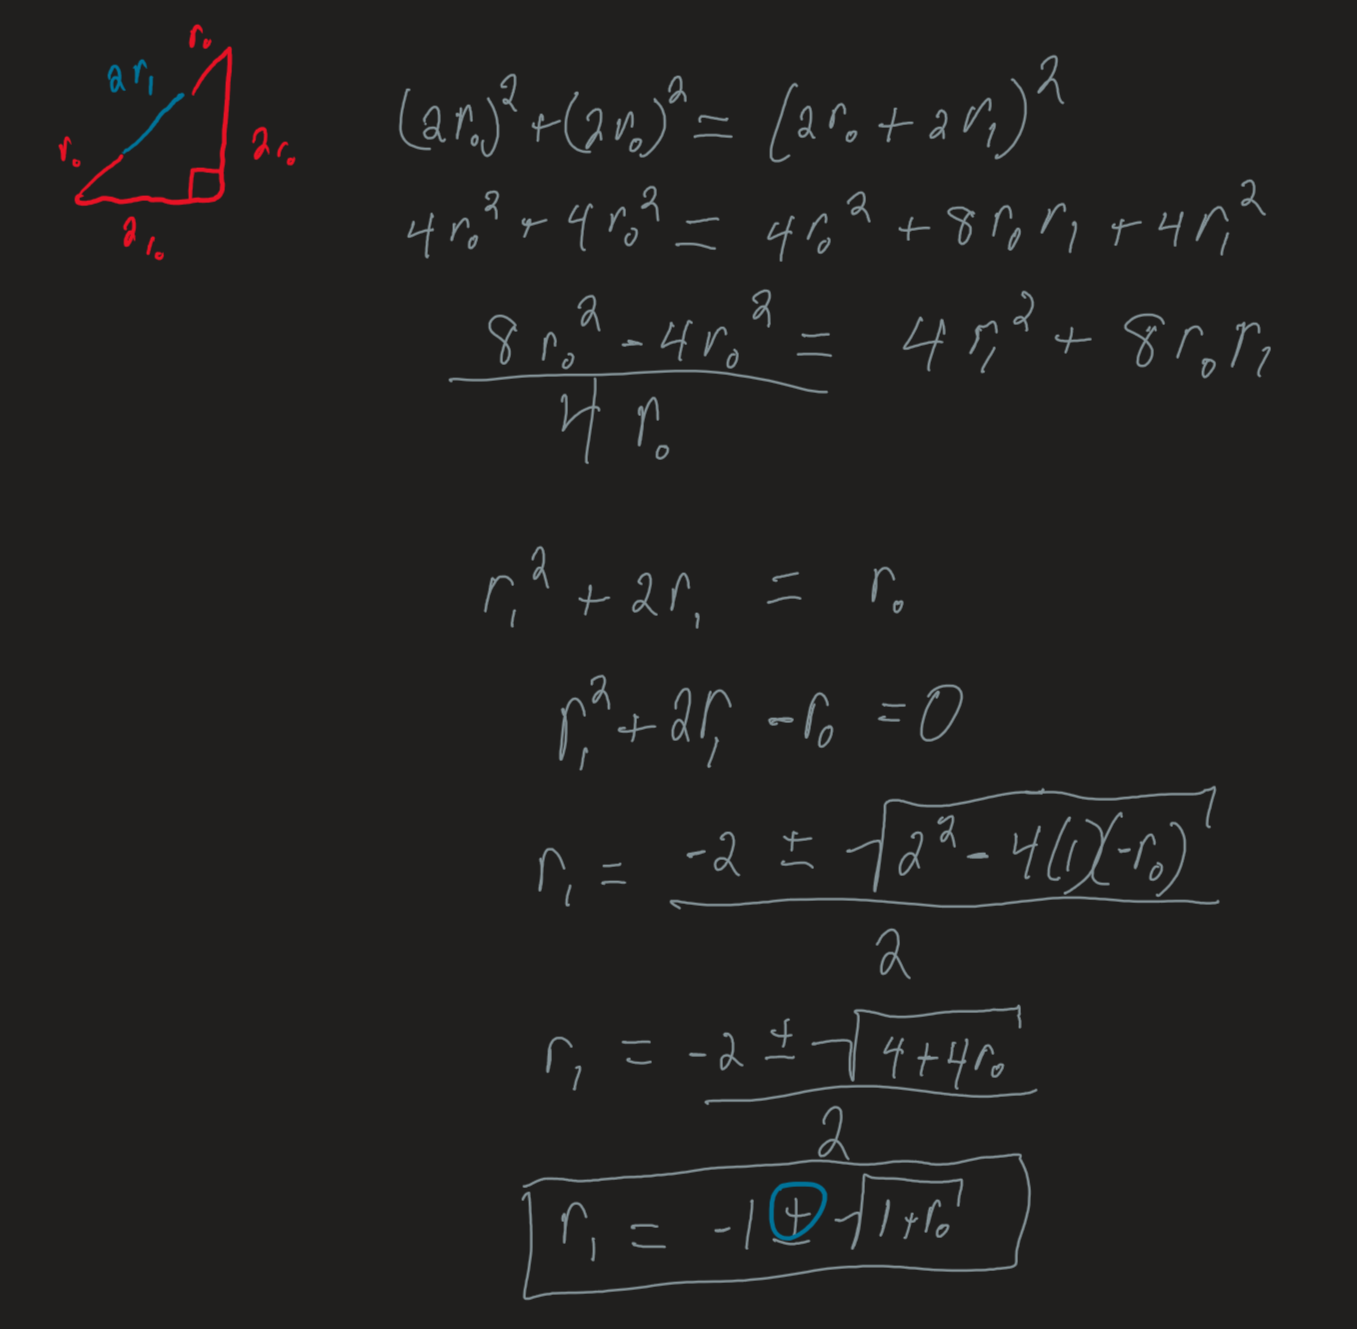 r₀
2r₁
r₀
2r₀
2r₀
(2r₀)² + (2r₀)² = (2r₀ + 2r₁)²
4r₀² + 4r₀² = 4r₀² + 8r₀r₁ + 4r₁²
8r₀² - 4r₀² = 4r₁² + 8r₀r₁
4r₀
r₁² + 2r₁ = r₀
r₁² + 2r₁ - r₀ = 0
r₁ = -2 ± √(2² - 4(1)(-r₀))
2
r₁ = -2 ± √(4 + 4r₀)
2
r₁ = -1 ± √(1 + r₀)